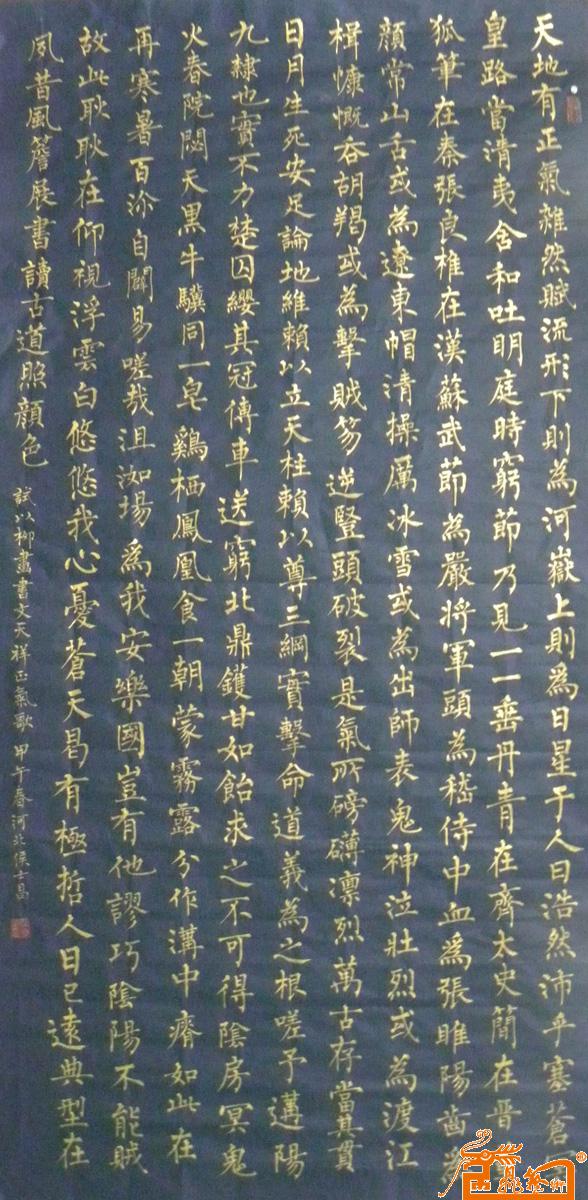 天地有正氣雜然賦流形下則為河嶽上則為日星于人曰浩然沛乎塞蒼
皇路當清夷含和吐明庭時窮節乃見一一垂丹青在齊太史簡在晋
狐筆在秦張良椎在漢蘇武節為嚴將軍頭為嵇侍中血為張睢陽齒
顏常山舌或為遼東帽清操厲冰雪或為出師表鬼神泣壯烈或為渡江
楫慷慨吞胡羯或為擊賊笏逆豎頭破裂是氣所磅礴凛烈萬古存當其貫
日月生死安足論地維賴以立天柱賴以尊三綱實擊命道義為之根嗟予遘陽
九隸也實不力楚囚纓其冠傳車送窮北鼎鑊甘如飴求之不可得陰房冥鬼
火春院閟天黑牛驥同一皂鷄栖鳳凰食一朝蒙霧露分作溝中瘠如此在
再寒暑百沴自闢易嗟哉沮洳場為我安樂國豈有他謬巧陰陽不能賊
故此耿耿在仰視浮雲白悠悠我心憂蒼天曷有極哲人日已遠典型在
夙昔風簷展書讀古道照顏色
試以柳畫書文天祥正氣歌 甲午春河北侯士昌